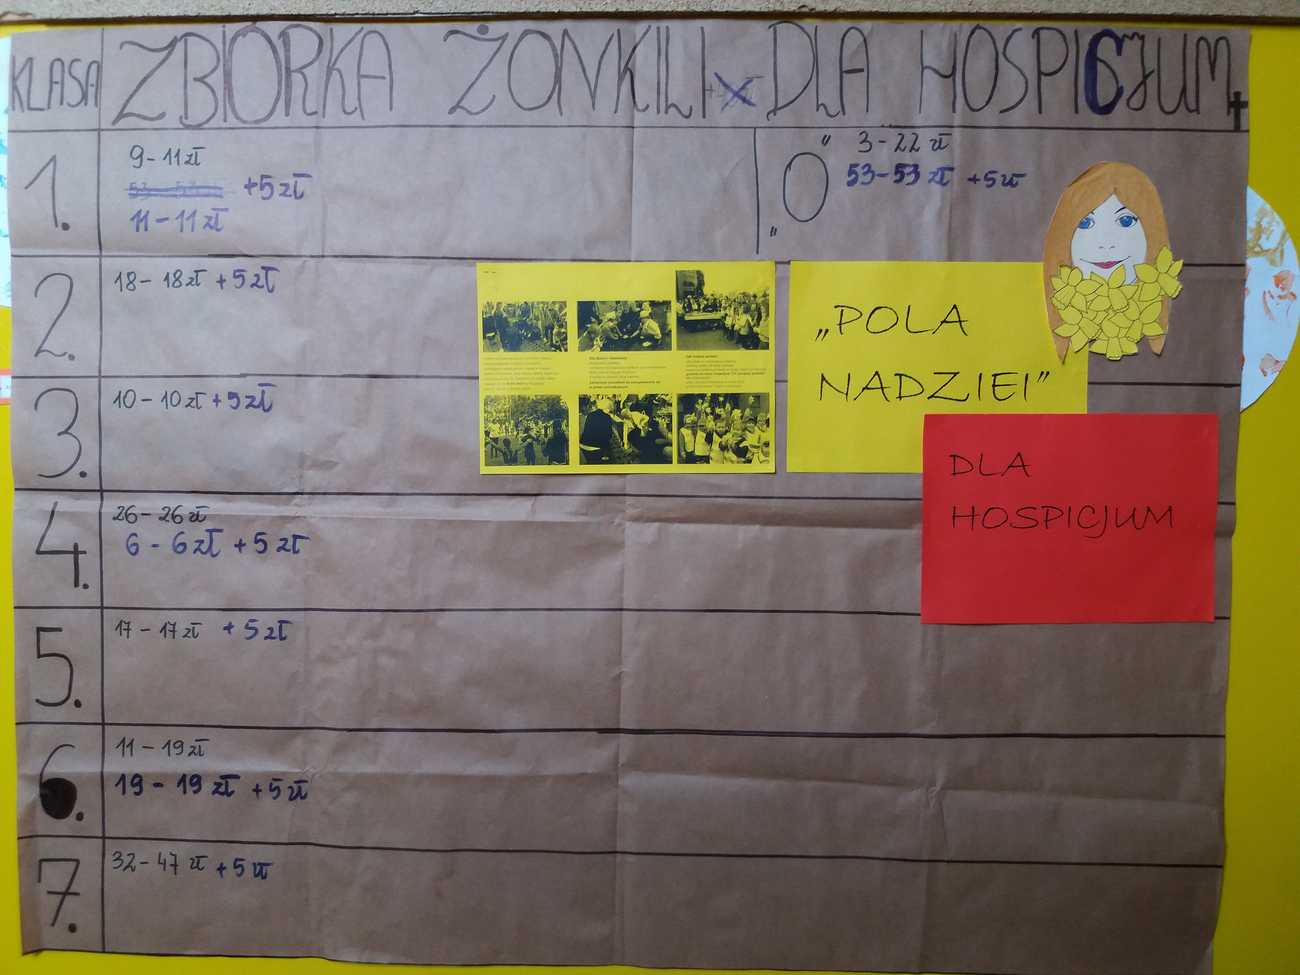 KLASA ZBIÓRKA ŻONKILI DLA HOSPICJUM
1. 9 - 11 zł
+5 zł
11 - 11 zł
„O” 3 - 22 zł
53 - 53 zł +5 zł
2. 18 - 18 zł +5 zł
3. 10 - 10 zł +5 zł
4. 26 - 26 zł
6 - 6 zł +5 zł
5. 17 - 17 zł +5 zł
6. 11 - 19 zł
19 - 19 zł +5 zł
7. 32 - 47 zł +5 zł
„POLA
NADZIEI”
DLA
HOSPICJUM